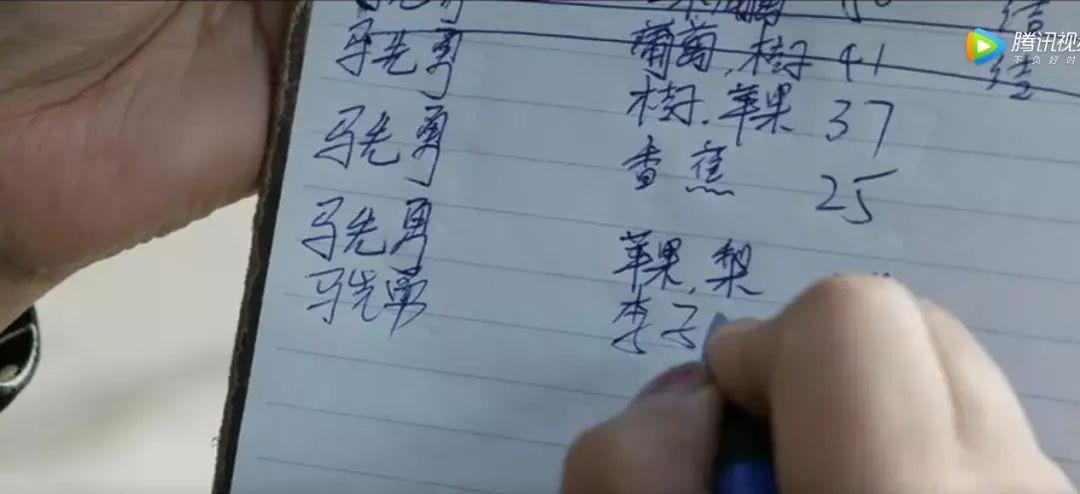 马先勇 葡萄,樹子 41 结
马先勇 樹子.苹果 37
马先勇 香蕉 25
马先勇 苹果,梨
李子
腾讯视频
不负好时